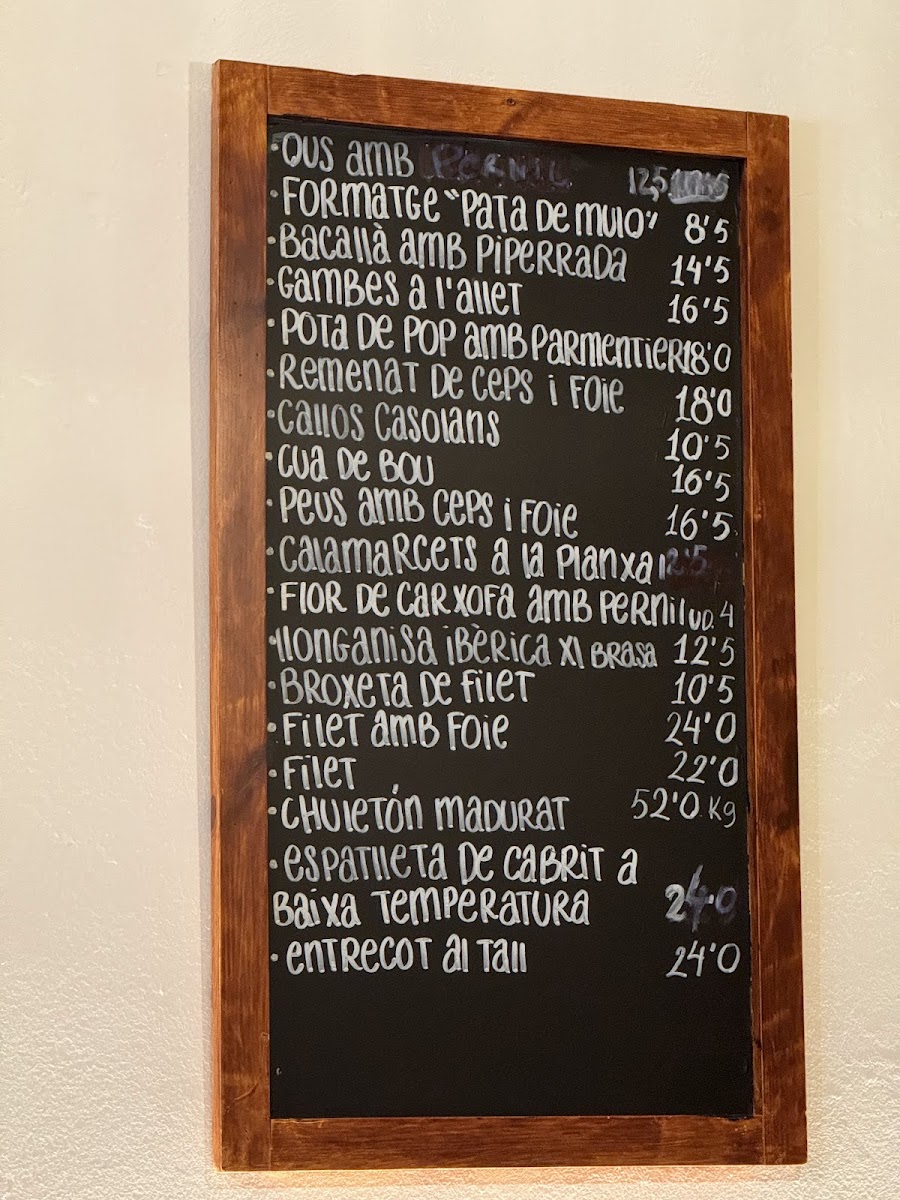 · OUS AMB PERNIL 12,5
· FORMATGE "PATA DE MULO" 8'5
· BACALLÀ AMB PIPERRADA 14'5
· GAMBES A L'ALLET 16'5
· POTA DE POP AMB PARMENTIER 18'0
· REMENAT DE CEPS I FOIE 18'0
· CALLOS CASOLANS 10'5
· CUA DE BOU 16'5
· PEUS AMB CEPS I FOIE 16'5
· CALAMARCETS A LA PLANXA 12'5
· FLOR DE CARXOFA AMB PERNIL UD. 4
· LLONGANISA IBÈRICA X1 BRASA 12'5
· BROXETA DE FILET 10'5
· FILET AMB FOIE 24'0
· FILET 22'0
· CHULETÓN MADURAT 52'0 Kg
· ESPATLLETA DE CABRIT A
BAIXA TEMPERATURA 24'0
· ENTRECOT AL TALL 24'0